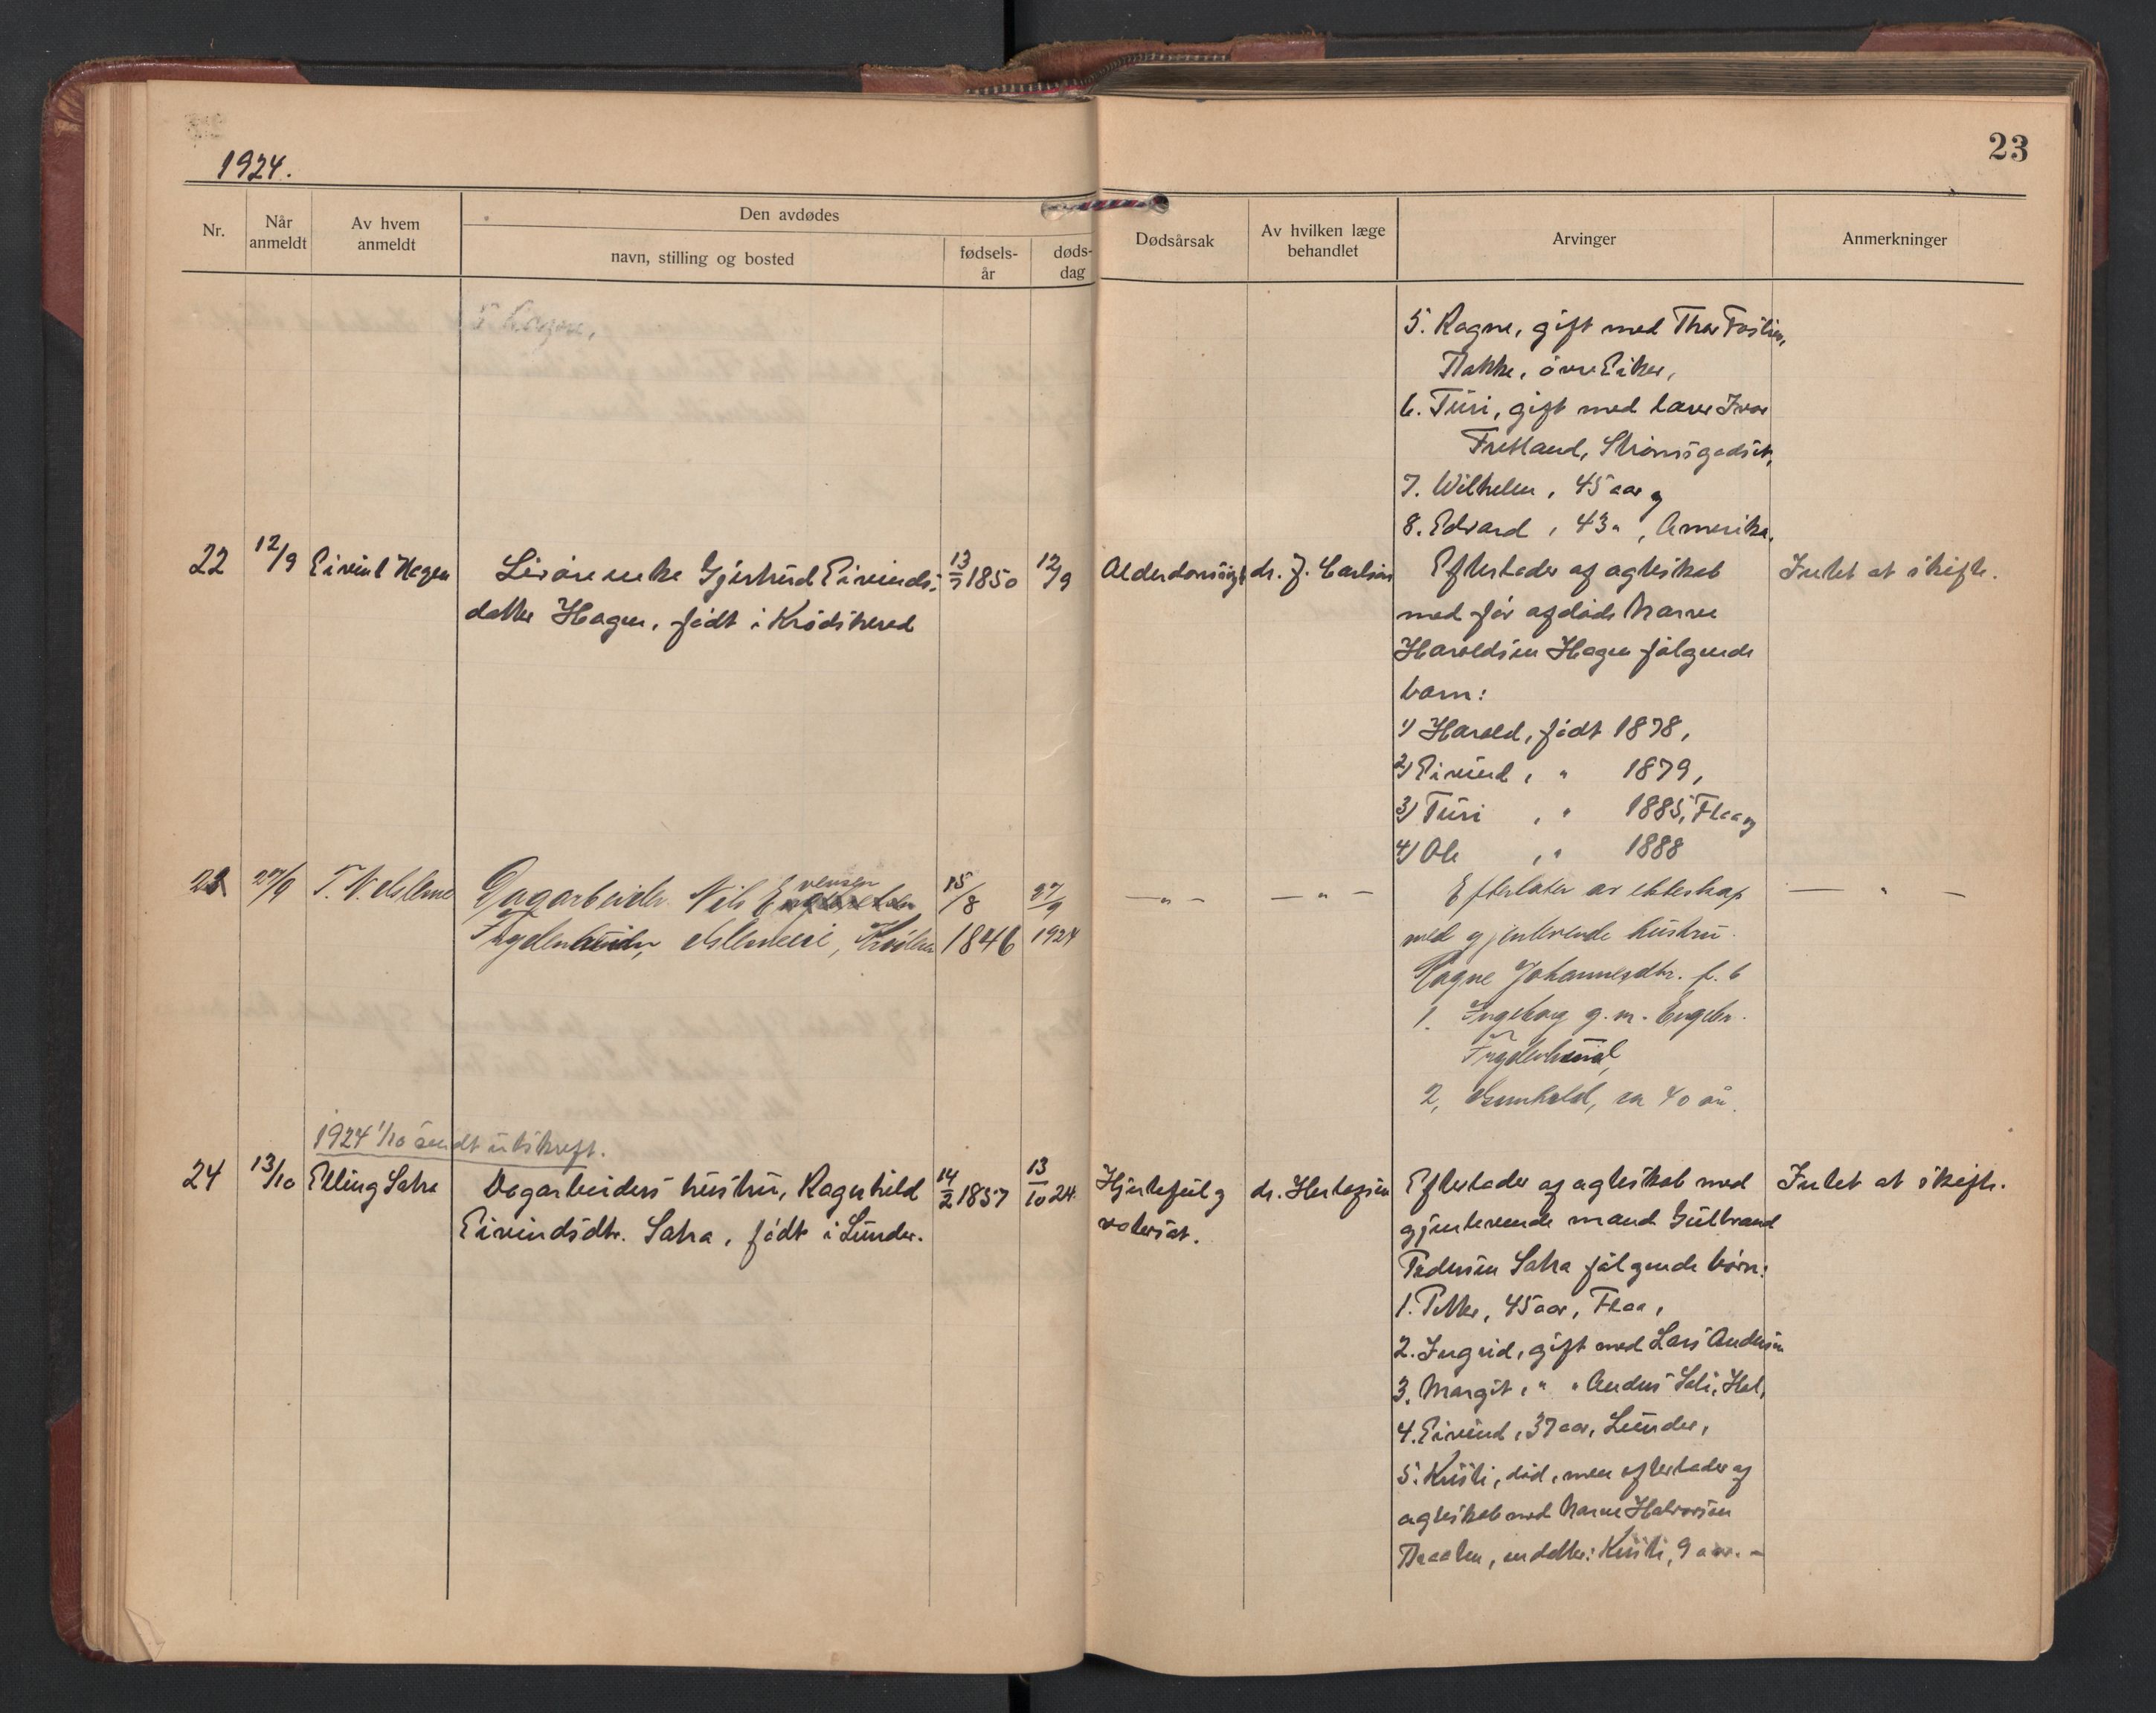 1924.
23
Nr.
Når anmeldt
Av hvem anmeldt
Den avdødes
navn, stilling og bosted
fødsels-år
døds-dag
Dødsårsak
Av hvilken læge behandlet
Arvinger
Anmerkninger
5 Ragne,
5. Ragne, gift med Thor
øvre Eiker,
6. Turi, gift med lærer Ivar
Strømsgodset,
7. Wilhelm, 45 aar og
8. Edvard, 43 " , Amerika.
22 12/9 Eivind Hagen
Livøreenke Gjertrud Eivinds-
datter Hagen, født i Krødshered
13/7 1850 12/9
Alderdomssvgh dr. J. Carlsen
Efterlader af agteskab
med før afdøde Narve
Haroldsen Hagen følgende
børn:
1) Harald, født 1878,
2) Eivind, " 1879,
3) Turi , " 1885, Flaa og
4) Ole , " 1888
Intet at skifte.
23 27/9 T. N. Slevne
Dagarbeider Nils
Frydenlund,
15/8 1846 27/9 1924
— " — — " —
Efterlater av ekteskap
med gjenlevende hustru
Ragne Johannesdtr. f. b
1. Ingeborg g. m. Engebr.
Frydenlund,
2, Gunhild, ca 40 år.
— " —
1924 1/10 sendt utskrift.
24 13/10 Elling Sætra
Dagarbeiders hustru, Ragnhild
Eivindsdtr. Sætra, født i Lunder.
14/2 1857 13/10 24.
Hjertefeil og
vatersot.
dr. Hertzsen
Efterlader af agteskab med
gjenlevende mand Gulbrand
Pedersen Sætra følgende børn:
1. Petter, 45 aar, Flaa,
2. Ingrid, gift med Lars Andersen
3. Margit, " " Anders Hol,
4. Eivind, 37 aar, Lunder,
5. Kristi, død, men efterlader af
agteskab med Narve Halvorsen
en datter: Kristi, 9 aar. –
Intet at skifte.